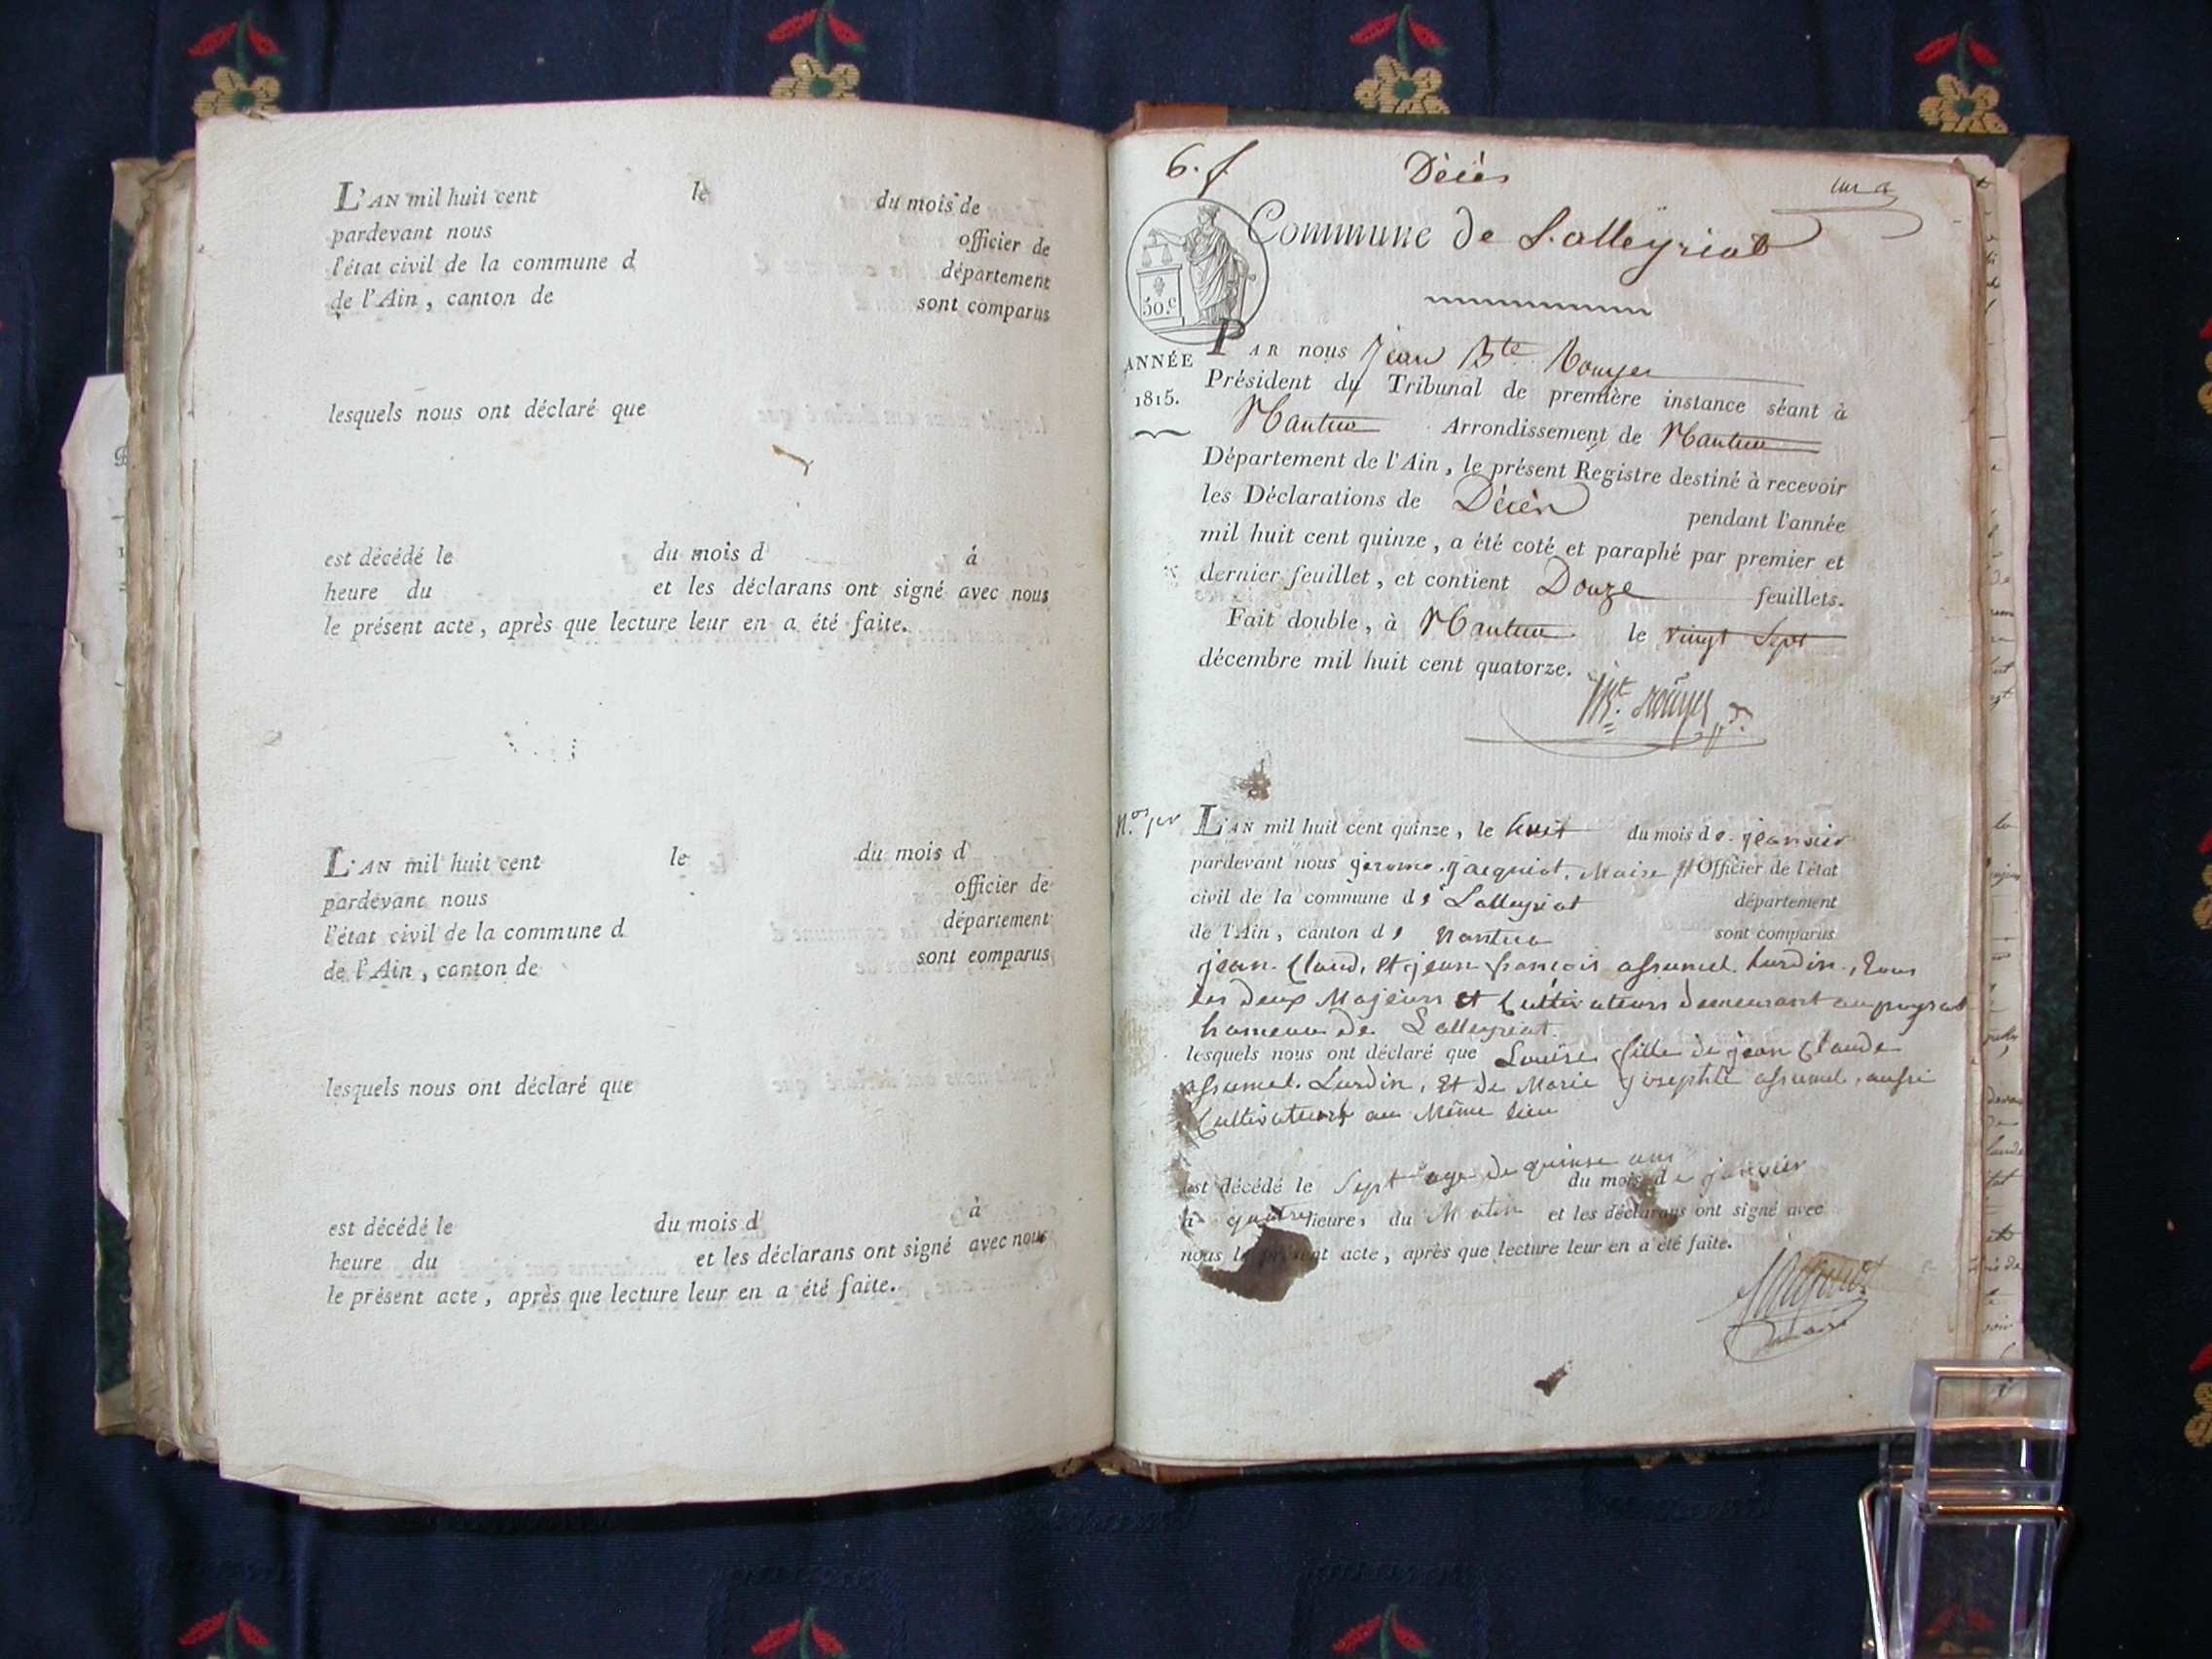 L'AN mil huit cent le du mois de
pardevant nous officier de
l'état civil de la commune d département
de l'Ain, canton de sont comparus
lesquels nous ont déclaré que
est décédé le du mois d à
heure du et les déclarans ont signé avec nous
le présent acte, après que lecture leur en a été faite.
L'AN mil huit cent le du mois d
pardevant nous officier de
l'état civil de la commune d département
de l'Ain, canton de sont comparus
lesquels nous ont déclaré que
est décédé le du mois d à
heure du et les déclarans ont signé avec nous
le présent acte, après que lecture leur en a été faite.
Décès
Commune de Lalleyriat
50.c
ANNÉE
1815.
PAR nous Jean Bte Rouyer
Président du Tribunal de première instance séant à
Nantua Arrondissement de Nantua
Département de l'Ain, le présent Registre destiné à recevoir
les Déclarations de Décès pendant l'année
mil huit cent quinze, a été coté et paraphé par premier et
dernier feuillet, et contient Douze feuillets.
Fait double, à Nantua le vingt Sept
décembre mil huit cent quatorze.
Bt. Rouyer
N.os 1er
L'AN mil huit cent quinze, le huit du mois de janvier
pardevant nous jerome jacquiot, Maire Officier de l'état
civil de la commune de Lalleyriat département
de l'Ain, canton de Nantua sont comparus
jean Claud, Et jean françois assumel Lurdin, tous
les deux Majeurs et Cultivateurs demeurant au poyzat
hameau de Lalleyriat.
lesquels nous ont déclaré que Louise fille de jean Claude
assumel Lurdin, Et de Marie josephte assumel, aussi
Cultivateurs au Même lieu
age de quinse ans
est décédé le Sept du mois de janvier
à quatre heures du Matin et les déclarans ont signé avec
nous le présent acte, après que lecture leur en a été faite.
Maire